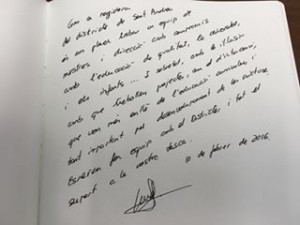 Com a regidora
del districte de Sant Andreu
és un plaer trobar un equip de
mestres i direcció amb compromís
amb l'educació de qualitat, la
i els infants... I sobretot, amb la il·lusió
amb que treballen projectes, com el d'escacs,
que van més enllà de l'educació curricular, i
tant important pel desenvolupament de les
Esperem fer equip amb el Districte i tot el
suport a la vostra tasca.
10 de febrer de 2016.